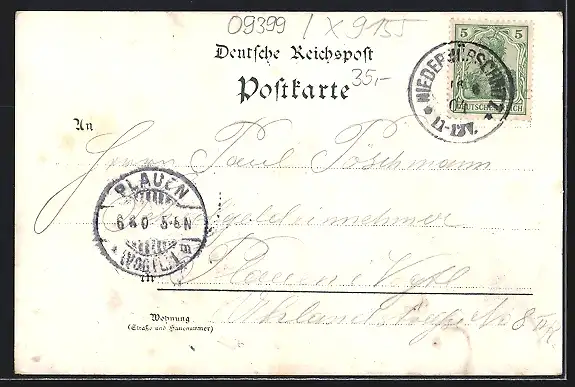 09399 / X9155
Deutsche Reichspost
Postkarte
35,-
5 5
DEUTSCHES REICH
NIEDER
11-12V.
An
Herrn Paul Pöschmann
PLAUEN
5-6N
(VOGTL.)
in
Plauen i. Vogtl.
Wohnung
(Straße und Hausnummer)
Uhlandstraße Nr 8